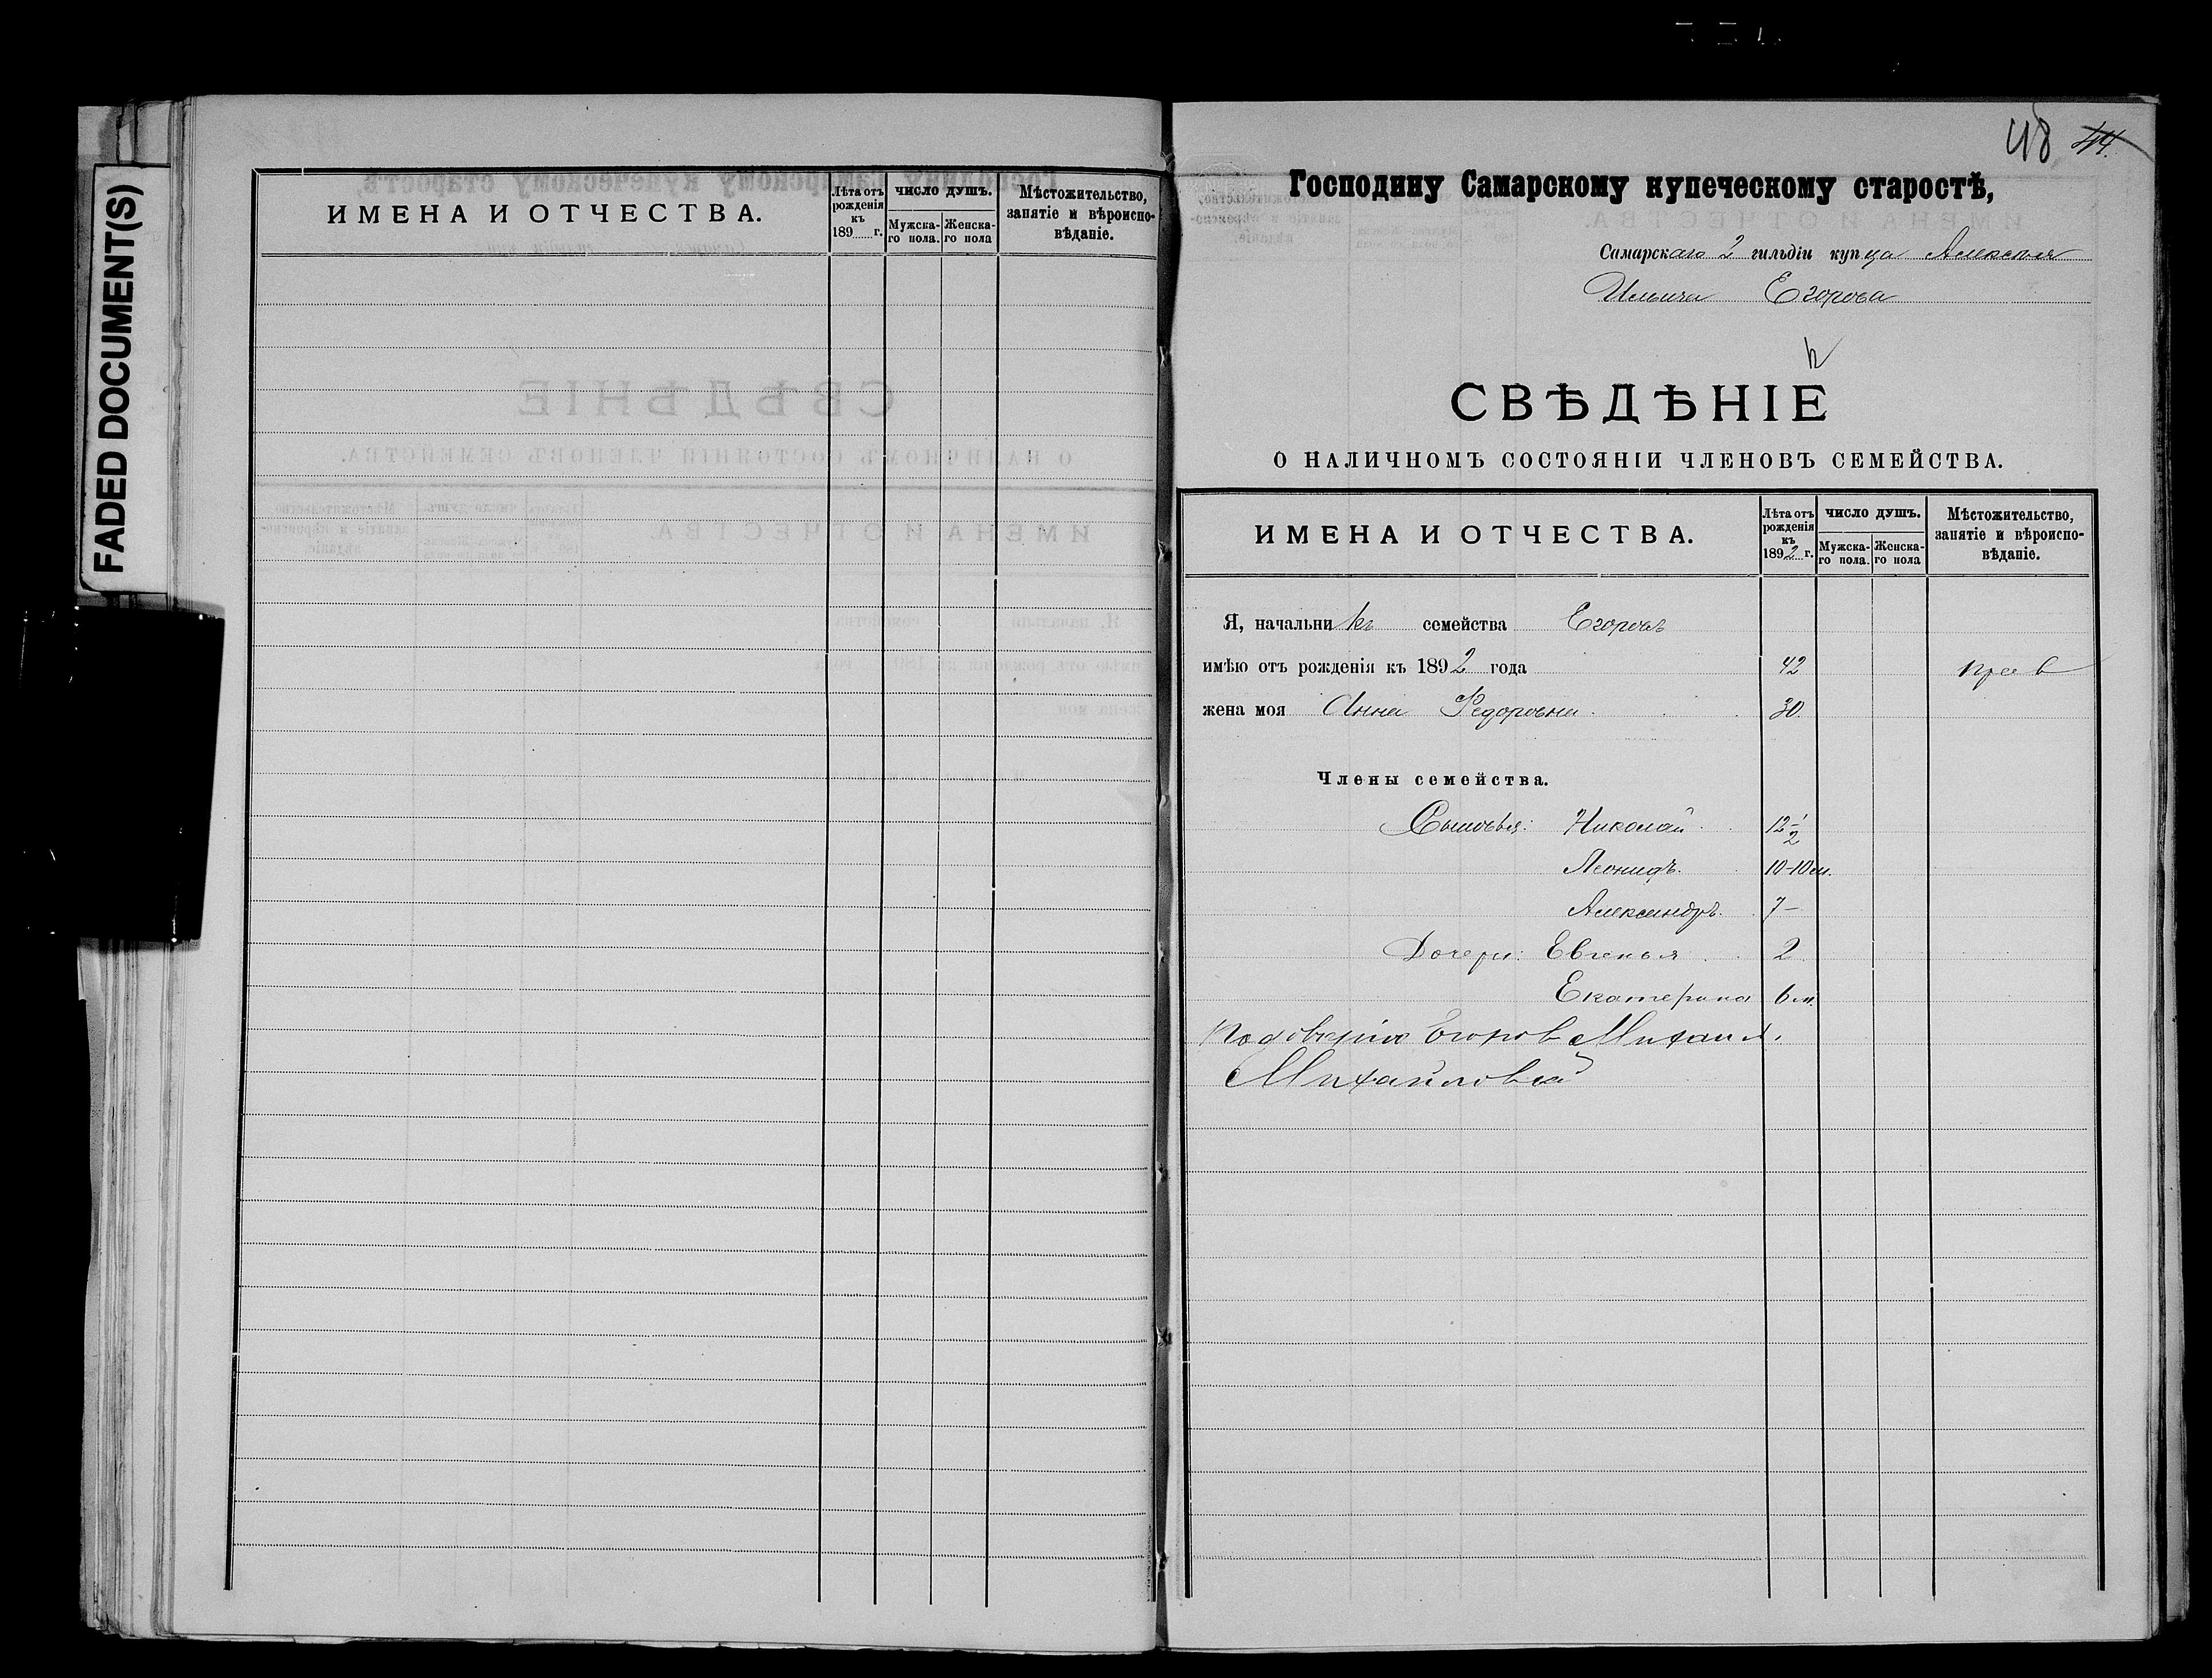 FADED DOCUMENT(S)
ИМЕНА И ОТЧЕСТВА.
Лѣта отъ рожденія къ 189 г.
ЧИСЛО ДУШЪ.
Мужска-го пола.
Женска-го пола
Мѣстожительство, занятіе и вѣроиспо-вѣданіе.
48 44.
Господину Самарскому купеческому старостѣ,
Самарскаго 2 гильдіи купца Алексѣя
Ильича Егорова
СВѢДѢНІЕ
О НАЛИЧНОМЪ СОСТОЯНІИ ЧЛЕНОВЪ СЕМЕЙСТВА.
ИМЕНА И ОТЧЕСТВА.
Лѣта отъ рожденія къ 1892 г.
ЧИСЛО ДУШЪ.
Мужска-го пола.
Женска-го пола
Мѣстожительство, занятіе и вѣроиспо-вѣданіе.
Я, начальникъ семейства Егоровъ
имѣю отъ рожденія къ 1892 года 42 прав
жена моя Анна Федоровна. 30.
Члены семейства.
Сыновья: Николай. 12 1/2
Леонидъ. 10-10 м.
Александръ. 7 —
Дочери: Евгенья 2
Екатерина 6 м.
По доверію Егоров Михаил.
Михайловъ